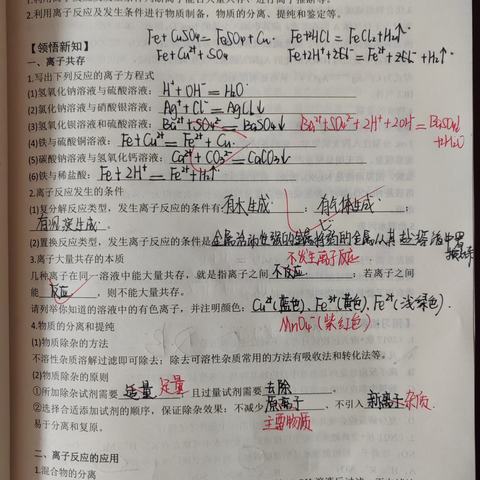 2.利用离子反应及发生条件进行物质制备，物质的分离、提纯和鉴定等。
Fe+CuSO₄=FeSO₄+Cu. Fe+HCl=FeCl₂+H₂↑.
【领悟新知】
Fe+Cu²⁺+SO₄
Fe+2H⁺+2Cl⁻=Fe²⁺+2Cl⁻+H₂↑.
一、离子共存
1.写出下列反应的离子方程式
(1)氢氧化钠溶液与硫酸溶液：H⁺+OH⁻=H₂O
(2)氯化钠溶液与硝酸银溶液：Ag⁺+Cl⁻=AgCl↓
(3)氢氧化钡溶液和硫酸溶液：Ba²⁺+SO₄²⁻=BaSO₄↓ Ba²⁺+SO₄²⁻+2H⁺+2OH⁻=BaSO₄↓
+H₂O
(4)铁与硫酸铜溶液：Fe+Cu²⁺=Fe²⁺+Cu.
(5)碳酸钠溶液与氢氧化钙溶液：Ca²⁺+CO₃²⁻=CaCO₃↓
(6)铁与稀盐酸：Fe+2H⁺=Fe²⁺+H₂↑.
2.离子反应发生的条件
(1)复分解反应类型，发生离子反应的条件有：有水生成；有气体生成；
有沉淀生成.
(2)置换反应类型，发生离子反应的条件是金属活动性强的金属将弱的金属从其盐溶液中置
换出来
3.离子大量共存的本质
不发生离子反应
几种离子在同一溶液中能大量共存，就是指离子之间不反应；若离子之间
能反应，则不能大量共存。
请列举你知道的溶液中的有色离子，并注明颜色：Cu²⁺(蓝色). Fe³⁺(黄色). Fe²⁺(浅绿色).
MnO₄⁻(紫红色)
4.物质的分离和提纯
(1)物质除杂的方法
不溶性杂质溶解过滤即可除去；除去可溶性杂质常用的方法有吸收法和转化法等。
(2)物质除杂的原则
①所加除杂试剂需要适量 足量且过量试剂需要去除
②选择合适添加试剂的顺序，保证除杂效果；不减少原离子，不引入新离子 杂质.
主要物质
易于分离和复原。
二、离子反应的应用
1.混合物的分离